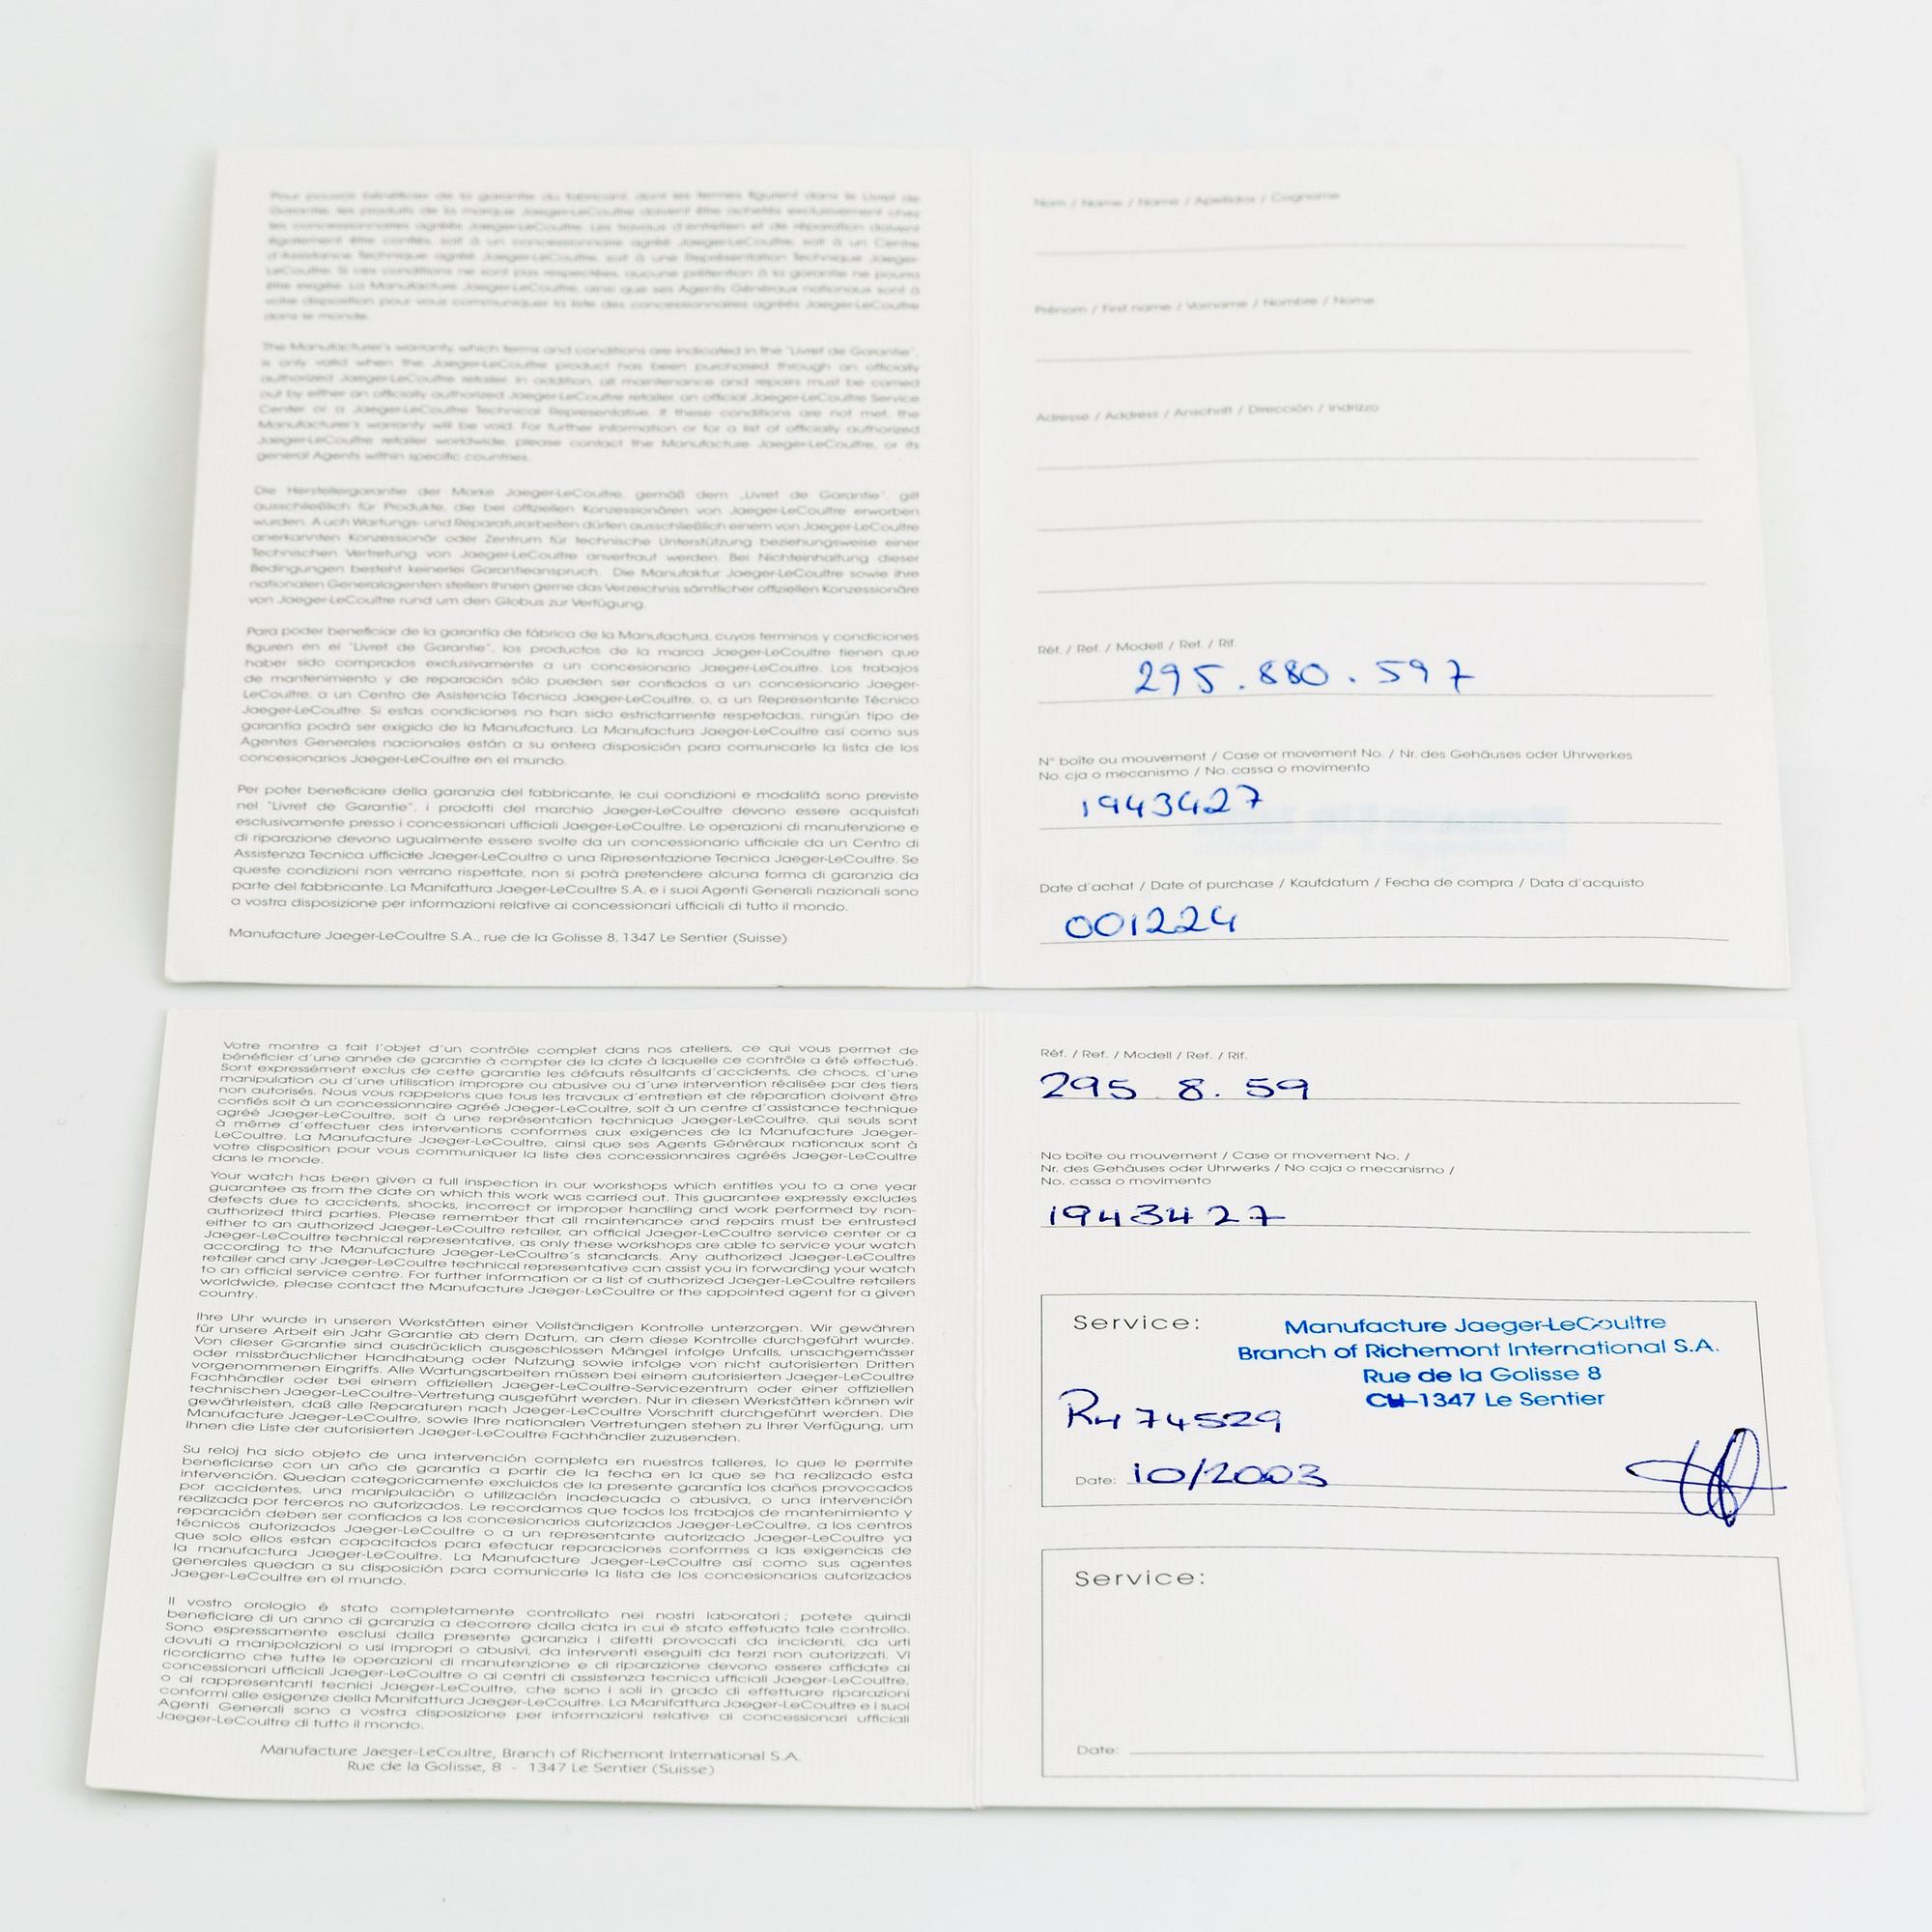 Pour pouvoir bénéficier de la garantie du fabricant, dont les termes figurent dans le Livret de
Garantie, les produits de la marque Jaeger-LeCoultre doivent être achetés exclusivement chez
les concessionnaires agréés Jaeger-LeCoultre. Les travaux d'entretien et de réparation doivent
également être confiés, soit à un concessionnaire agréé Jaeger-LeCoultre, soit à un Centre
d'Assistance Technique agréé Jaeger-LeCoultre, soit à une Représentation Technique Jaeger-
LeCoultre. Si ces conditions ne sont pas respectées, aucune prétention à la garantie ne pourra
être exigée. La Manufacture Jaeger-LeCoultre, ainsi que ses Agents Généraux nationaux sont à
votre disposition pour vous communiquer la liste des concessionnaires agréés Jaeger-LeCoultre
dans le monde.
The Manufacturer's warranty, which terms and conditions are indicated in the "Livret de Garantie",
is only valid when the Jaeger-LeCoultre product has been purchased through an officially
authorized Jaeger-LeCoultre retailer. In addition, all maintenance and repairs must be carried
out by either an officially authorized Jaeger-LeCoultre retailer, an official Jaeger-LeCoultre Service
Center or a Jaeger-LeCoultre Technical Representative. If these conditions are not met, the
Manufacturer's warranty will be void. For further information or for a list of officially authorized
Jaeger-LeCoultre retailer worldwide, please contact the Manufacture Jaeger-LeCoultre, or its
general Agents within specific countries.
Die Herstellergarantie der Marke Jaeger-LeCoultre, gemäß dem „Livret de Garantie", gilt
ausschließlich für Produkte, die bei offiziellen Konzessionären von Jaeger-LeCoultre erworben
wurden. Auch Wartungs- und Reparaturarbeiten dürfen ausschließlich einem von Jaeger-LeCoultre
anerkannten Konzessionär oder Zentrum für technische Unterstützung beziehungsweise einer
Technischen Vertretung von Jaeger-LeCoultre anvertraut werden. Bei Nichteinhaltung dieser
Bedingungen besteht keinerlei Garantieanspruch. Die Manufaktur Jaeger-LeCoultre sowie ihre
nationalen Generalagenten stellen Ihnen gerne das Verzeichnis sämtlicher offiziellen Konzessionäre
von Jaeger-LeCoultre rund um den Globus zur Verfügung.
Para poder beneficiar de la garantía de fábrica de la Manufactura, cuyos terminos y condiciones
figuren en el "Livret de Garantie", los productos de la marca Jaeger-LeCoultre tienen que
haber sido comprados exclusivamente a un concesionario Jaeger-LeCoultre. Los trabajos
de mantenimiento y de reparación sólo pueden ser confiados a un concesionario Jaeger-
LeCoultre, a un Centro de Asistencia Técnica Jaeger-LeCoultre, o, a un Representante Técnico
Jaeger-LeCoultre. Si estas condiciones no han sido estrictamente respetadas, ningún tipo de
garantía podrá ser exigido de la Manufactura. La Manufactura Jaeger-LeCoultre así como sus
Agentes Generales nacionales están a su entera disposición para comunicarle la lista de los
concesionarios Jaeger-LeCoultre en el mundo.
Per poter beneficiare della garanzia del fabbricante, le cui condizioni e modalitá sono previste
nel "Livret de Garantie", i prodotti del marchio Jaeger-LeCoultre devono essere acquistati
esclusivamente presso i concessionari ufficiali Jaeger-LeCoultre. Le operazioni di manutenzione e
di riparazione devono ugualmente essere svolte da un concessionario ufficiale da un Centro di
Assistenza Tecnica ufficiale Jaeger-LeCoultre o una Ripresentazione Tecnica Jaeger-LeCoultre. Se
queste condizioni non verrano rispettate, non si potrà pretendere alcuna forma di garanzia da
parte del fabbricante. La Manifattura Jaeger-LeCoultre S.A. e i suoi Agenti Generali nazionali sono
a vostra disposizione per informazioni relative ai concessionari ufficiali di tutto il mondo.
Manufacture Jaeger-LeCoultre S.A., rue de la Golisse 8, 1347 Le Sentier (Suisse)
Nom / Name / Name / Apellidos / Cognome
Prénom / First name / Vorname / Nombre / Nome
Adresse / Address / Anschrift / Dirección / Indrizzo
Réf. / Ref. / Modell / Ref. / Rif.
295.880.597
N° boîte ou mouvement / Case or movement No. / Nr. des Gehäuses oder Uhrwerkes
No. cja o mecanismo / No. cassa o movimento
1943427
Date d'achat / Date of purchase / Kaufdatum / Fecha de compra / Data d'acquisto
001224
Votre montre a fait l'objet d'un contrôle complet dans nos ateliers, ce qui vous permet de
bénéficier d'une année de garantie à compter de la date à laquelle ce contrôle a été effectué.
Sont expressément exclus de cette garantie les défauts résultants d'accidents, de chocs, d'une
manipulation ou d'une utilisation impropre ou abusive ou d'une intervention réalisée par des tiers
non autorisés. Nous vous rappelons que tous les travaux d'entretien et de réparation doivent être
confiés soit à un concessionnaire agréé Jaeger-LeCoultre, soit à un centre d'assistance technique
agréé Jaeger-LeCoultre, soit à une représentation technique Jaeger-LeCoultre, qui seuls sont
à même d'effectuer des interventions conformes aux exigences de la Manufacture Jaeger-
LeCoultre. La Manufacture Jaeger-LeCoultre, ainsi que ses Agents Généraux nationaux sont à
votre disposition pour vous communiquer la liste des concessionnaires agréés Jaeger-LeCoultre
dans le monde.
Your watch has been given a full inspection in our workshops which entitles you to a one year
guarantee as from the date on which this work was carried out. This guarantee expressly excludes
defects due to accidents, shocks, incorrect or improper handling and work performed by non-
authorized third parties. Please remember that all maintenance and repairs must be entrusted
either to an authorized Jaeger-LeCoultre retailer, an official Jaeger-LeCoultre service center or a
Jaeger-LeCoultre technical representative, as only these workshops are able to service your watch
according to the Manufacture Jaeger-LeCoultre's standards. Any authorized Jaeger-LeCoultre
retailer and any Jaeger-LeCoultre technical representative can assist you in forwarding your watch
to an official service centre. For further information or a list of authorized Jaeger-LeCoultre retailers
worldwide, please contact the Manufacture Jaeger-LeCoultre or the appointed agent for a given
country.
Ihre Uhr wurde in unseren Werkstätten einer Vollständigen Kontrolle unterzorgen. Wir gewähren
für unsere Arbeit ein Jahr Garantie ab dem Datum, an dem diese Kontrolle durchgeführt wurde.
Von dieser Garantie sind ausdrücklich ausgeschlossen Mängel infolge Unfalls, unsachgemässer
oder missbräuchlicher Handhabung oder Nutzung sowie infolge von nicht autorisierten Dritten
vorgenommenen Eingriffs. Alle Wartungsarbeiten müssen bei einem autorisierten Jaeger-LeCoultre
Fachhändler oder bei einem offiziellen Jaeger-LeCoultre-Servicezentrum oder einer offiziellen
technischen Jaeger-LeCoultre-Vertretung ausgeführt werden. Nur in diesen Werkstätten können wir
gewährleisten, daß alle Reparaturen nach Jaeger-LeCoultre Vorschrift durchgeführt werden. Die
Manufacture Jaeger-LeCoultre, sowie Ihre nationalen Vertretungen stehen zu Ihrer Verfügung, um
Ihnen die Liste der autorisierten Jaeger-LeCoultre Fachhändler zuzusenden.
Su reloj ha sido objeto de una intervención completa en nuestros talleres, lo que le permite
beneficiarse con un año de garantía a partir de la fecha en la que se ha realizado esta
intervención. Quedan categoricamente excluidos de la presente garantía los daños provocados
por accidentes, una manipulación o utilización inadecuada o abusiva, o una intervención
realizada por terceros no autorizados. Le recordamos que todos los trabajos de mantenimiento y
reparación deben ser confiados a los concesionarios autorizados Jaeger-LeCoultre, a los centros
técnicos autorizados Jaeger-LeCoultre o a un representante autorizado Jaeger-LeCoultre ya
que solo ellos estan capacitados para efectuar reparaciones conformes a las exigencias de
la manufactura Jaeger-LeCoultre. La Manufacture Jaeger-LeCoultre así como sus agentes
generales quedan a su disposición para comunicarle la lista de los concesionarios autorizados
Jaeger-LeCoultre en el mundo.
Il vostro orologio é stato completamente controllato nei nostri laboratori ; potete quindi
beneficiare di un anno di garanzia a decorrere dalla data in cui è stato effetuato tale controllo.
Sono espressamente esclusi dalla presente garanzia i difetti provocati da incidenti, da urti
dovuti a manipolazioni o usi impropri o abusivi, da interventi eseguiti da terzi non autorizzati. Vi
ricordiamo che tutte le operazioni di manutenzione e di riparazione devono essere affidate ai
concessionari ufficiali Jaeger-LeCoultre o ai centri di assistenza tecnica ufficiali Jaeger-LeCoultre,
o ai rappresentanti tecnici Jaeger-LeCoultre, che sono i soli in grado di effettuare riparazioni
conformi alle esigenze della Manifattura Jaeger-LeCoultre. La Manifattura Jaeger-LeCoultre e i suoi
Agenti Generali sono a vostra disposizione per informazioni relative ai concessionari ufficiali
Jaeger-LeCoultre di tutto il mondo.
Manufacture Jaeger-LeCoultre, Branch of Richemont International S.A.
Rue de la Golisse, 8 - 1347 Le Sentier (Suisse)
Réf. / Ref. / Modell / Ref. / Rif.
295 8. 59
No boîte ou mouvement / Case or movement No. /
Nr. des Gehäuses oder Uhrwerks / No caja o mecanismo /
No. cassa o movimento
1943427
Service:
Manufacture Jaeger-LeCoultre
Branch of Richemont International S.A.
Rue de la Golisse 8
CH-1347 Le Sentier
74529
Date: 10/2003
Service:
Date: